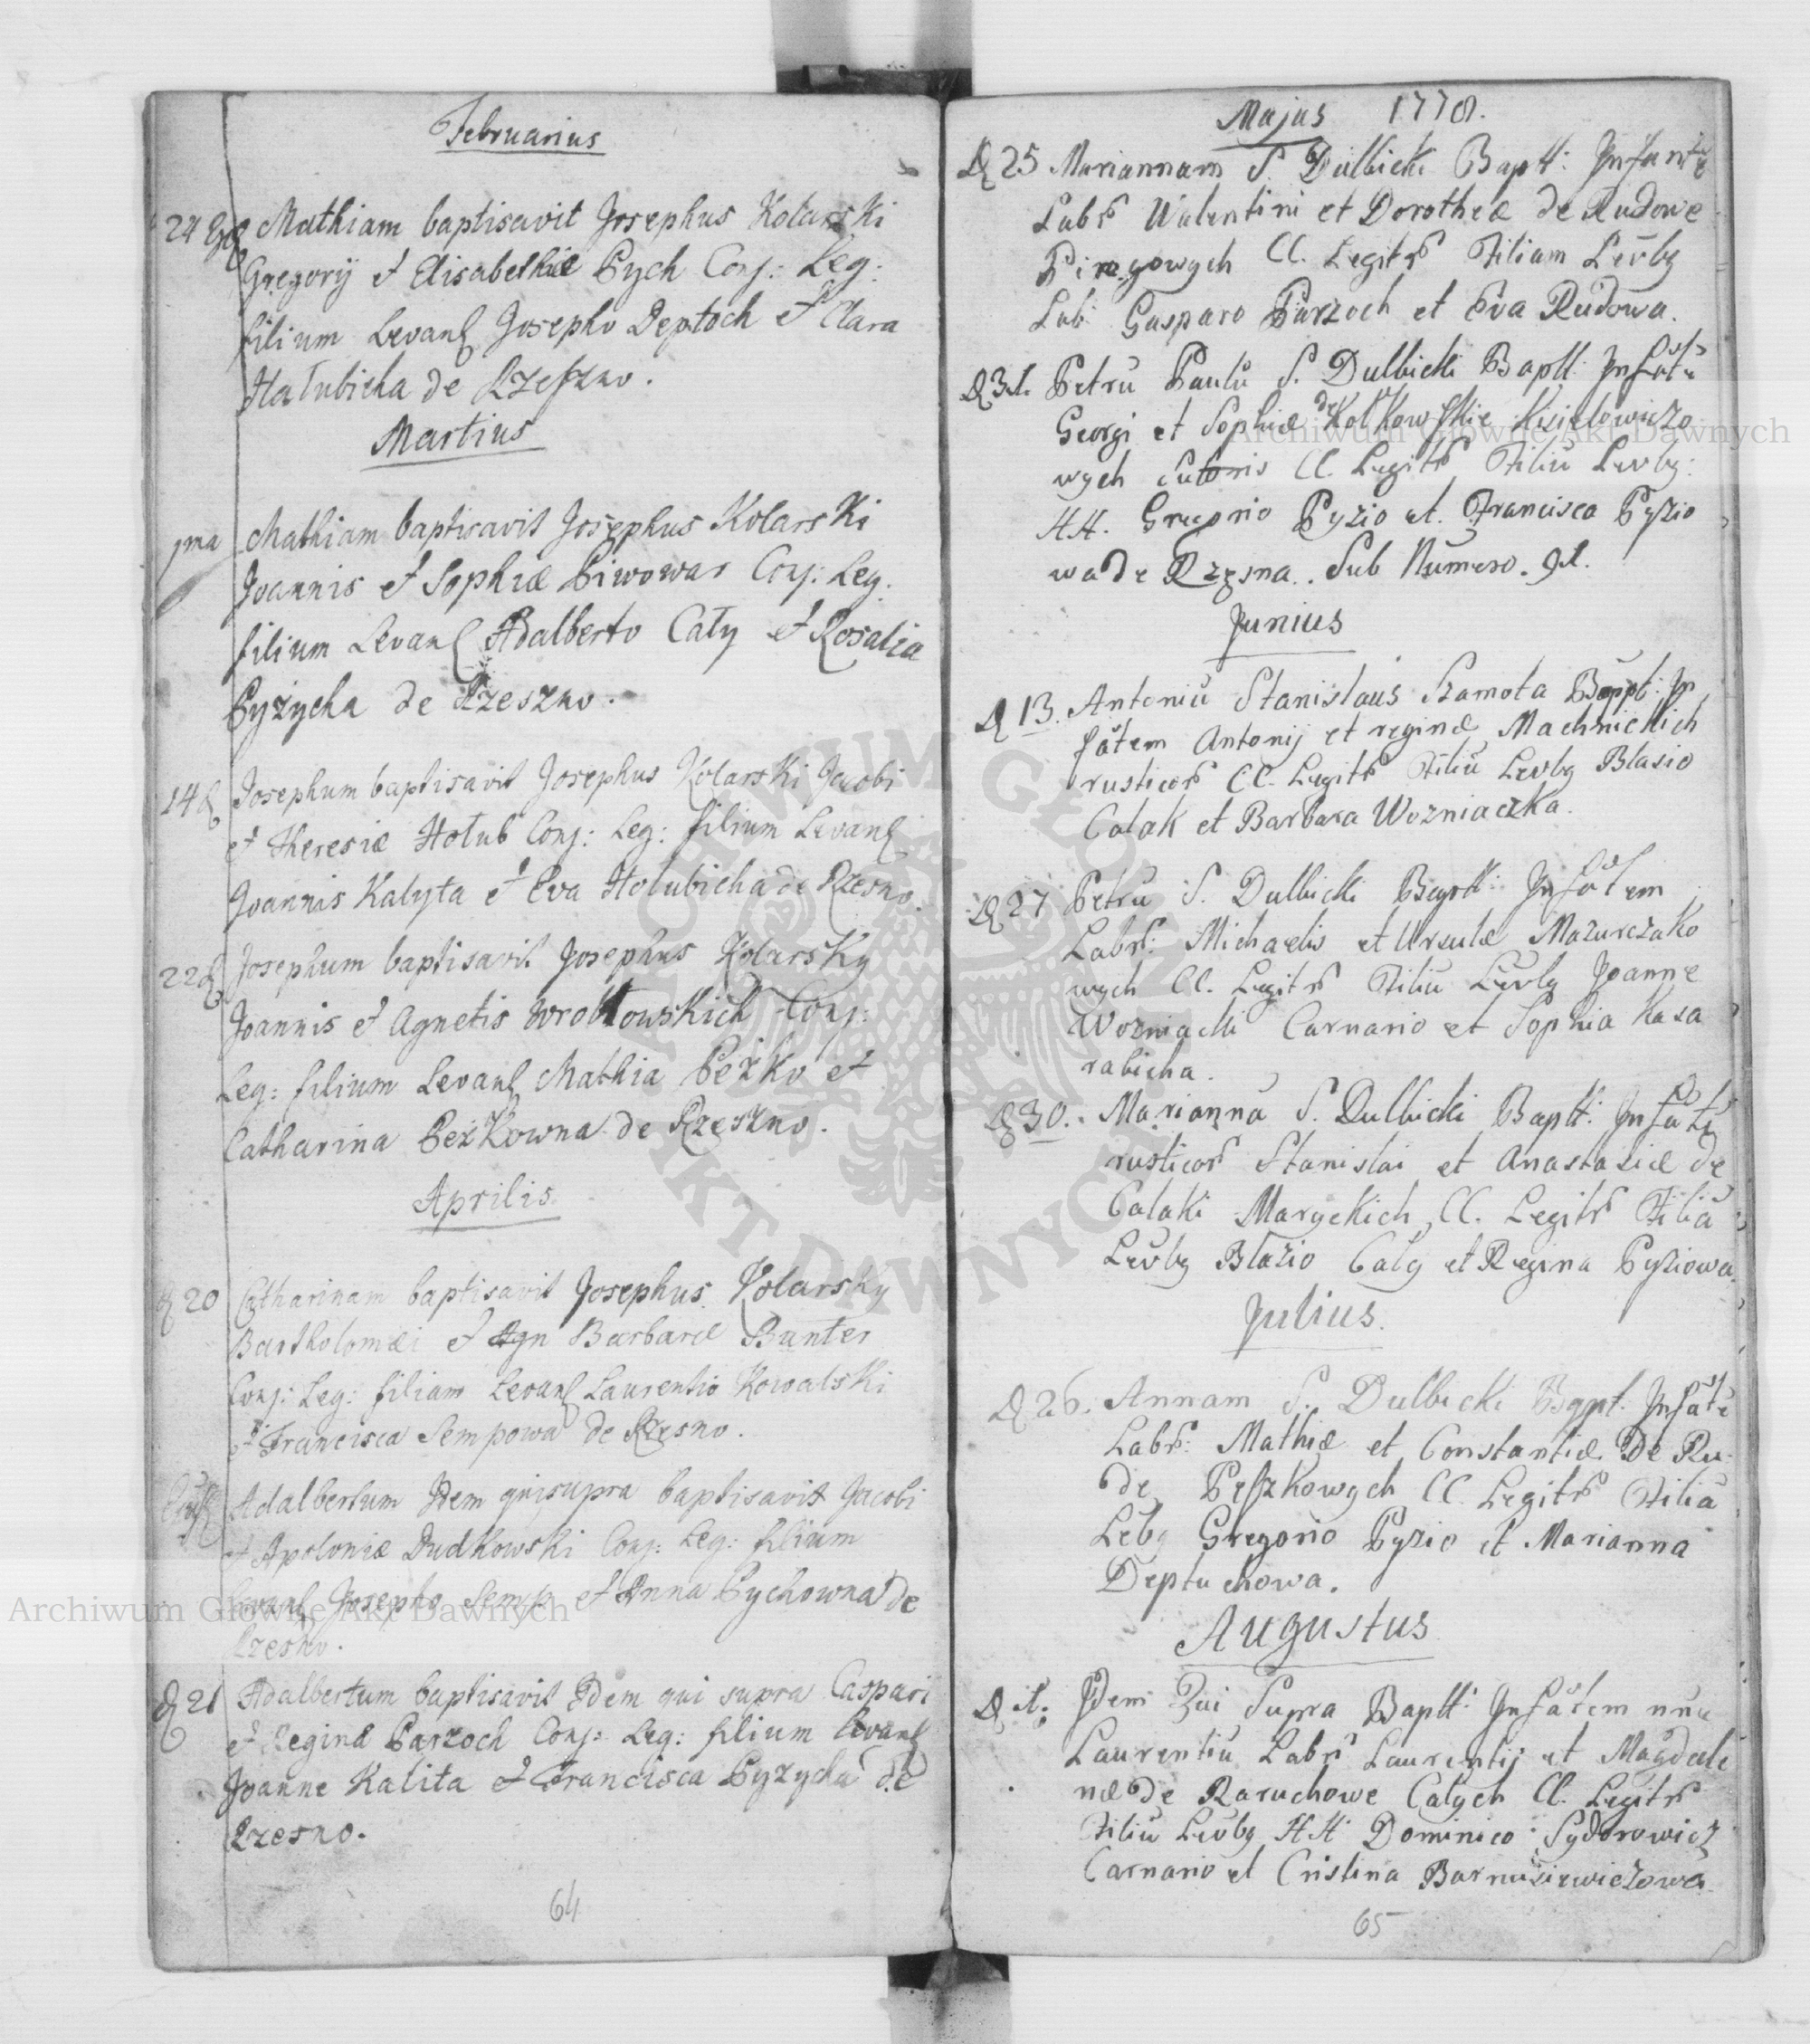 Februarius
24 Mathiam baptisavit Josephus Kolarski
Gregorij et Elisabethæ Pych Conj: Leg:
filium Levanł Josepho Deptoch et Clara
Hałubicha de Rzeszno.
Martius
1ma Mathiam baptisavit Josephus Kolarski
Joannis et Sophiæ Piwowar Conj: Leg.
filium Levanł Adalberto Cały et Rosalia
Pyzycha de Rzeszno.
14 Josephum baptisavit Josephus Kolarski Jacobi
et Theresiæ Hołub Conj: Leg: filium Levanł
Joannis Kalyta et Eva Holubicha de Rzesno.
22 Josephum baptisavit Josephus Kolarsky
Joannis et Agnetis Wrobłowskich Conj:
Leg: filium Levanł Mathia Peżko et
Catharina Peżkowna de Rzeszno.
Aprilis
20 Catharinam baptisavit Josephus Kolarsky
Bartholomæi et Barbaræ Bunter
Conj: Leg: filiam Levanł Laurentio Kowalski
et Francisca Sempowa de Rzesno.
Adalbertum Idem qui supra baptisavit Jacobi
et Apoloniæ Dudkowski Conj: Leg: filium
Levanł Josepho Semp et Anna Pychowna de
Rzesno.
21 Adalbertum baptisavit Idem qui supra Caspari
et Reginæ Parzoch Conj: Leg: filium Levanł
Joanne Kalita et Francisca Pyzycha de
Rzesno.
64
Majus 1778.
D 25 Mariannam S. Dulbicki Baptt: Infante
Labr Walentini et Dorotheæ de Rudowe
Pirogowych CC. Legitr Filiam Levbg
Lab: Gasparo Parzoch et Eva Rudowa.
D 31. Petrū Paulū S. Dulbicki Baptt: Infāte
Georgi et Sophiæ de Kołkowskie Kisielowiczo
wych Sutoris CC. Legitr Filiū Levbg:
HH. Gregorio Pyzio et Francisca Pyzio
wa de Rzęsna. Sub Numero. 91.
Junius
D 13. Antoniū Stanislaus Szamota Bappt: In
fātem Antonij et reginæ Machnickich
rusticor CC. Legitr Filiū Levbg Blasio
Calak et Barbara Wozniaczka.
D 27 Petrū S. Dulbicki Baptt: Infātem
Labr: Michaelis et Ursulæ Mazurczako
wych CC. Legitr Filiū Levbg Joanne
Wozniacki Carnario et Sophia Kasa
rabicha.
D 30. Mariannā S. Dulbicki Baptt: Infātē
rusticor Stanislai et Anastasiæ de
Calaki Maryckich CC. Legitr Filiā
Levbg Blazio Caly et Regina Pyziowa.
Julius.
D 26. Annam S. Dulbicki Bapt. Infāte
Labr: Mathiæ et Constantiæ De Ru
de Peszkowych CC. Legitr Filiā
Lebg Gregorio Pyzio et Marianna
Deptuchowa.
Augustus
D 1. Idem Qui Supra Baptt: Infātem nūc
Laurentiū Labr Laurentij et Magdale
næ de Raruchowe Calych CC. Legitr
Filiū Levbg HH Dominico Sydorowicz
Carnario et Cristina Barnusiewiczowa
65
Archiwum Główne Akt Dawnych
Archiwum Główne Akt Dawnych
ARCHIWUM GŁÓWNE
AKT DAWNYCH